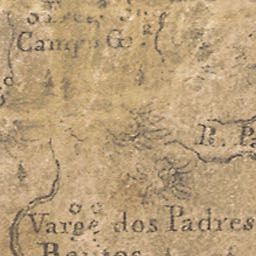 Campos Ge
R. Pa
Varge dos Padres
Bentos